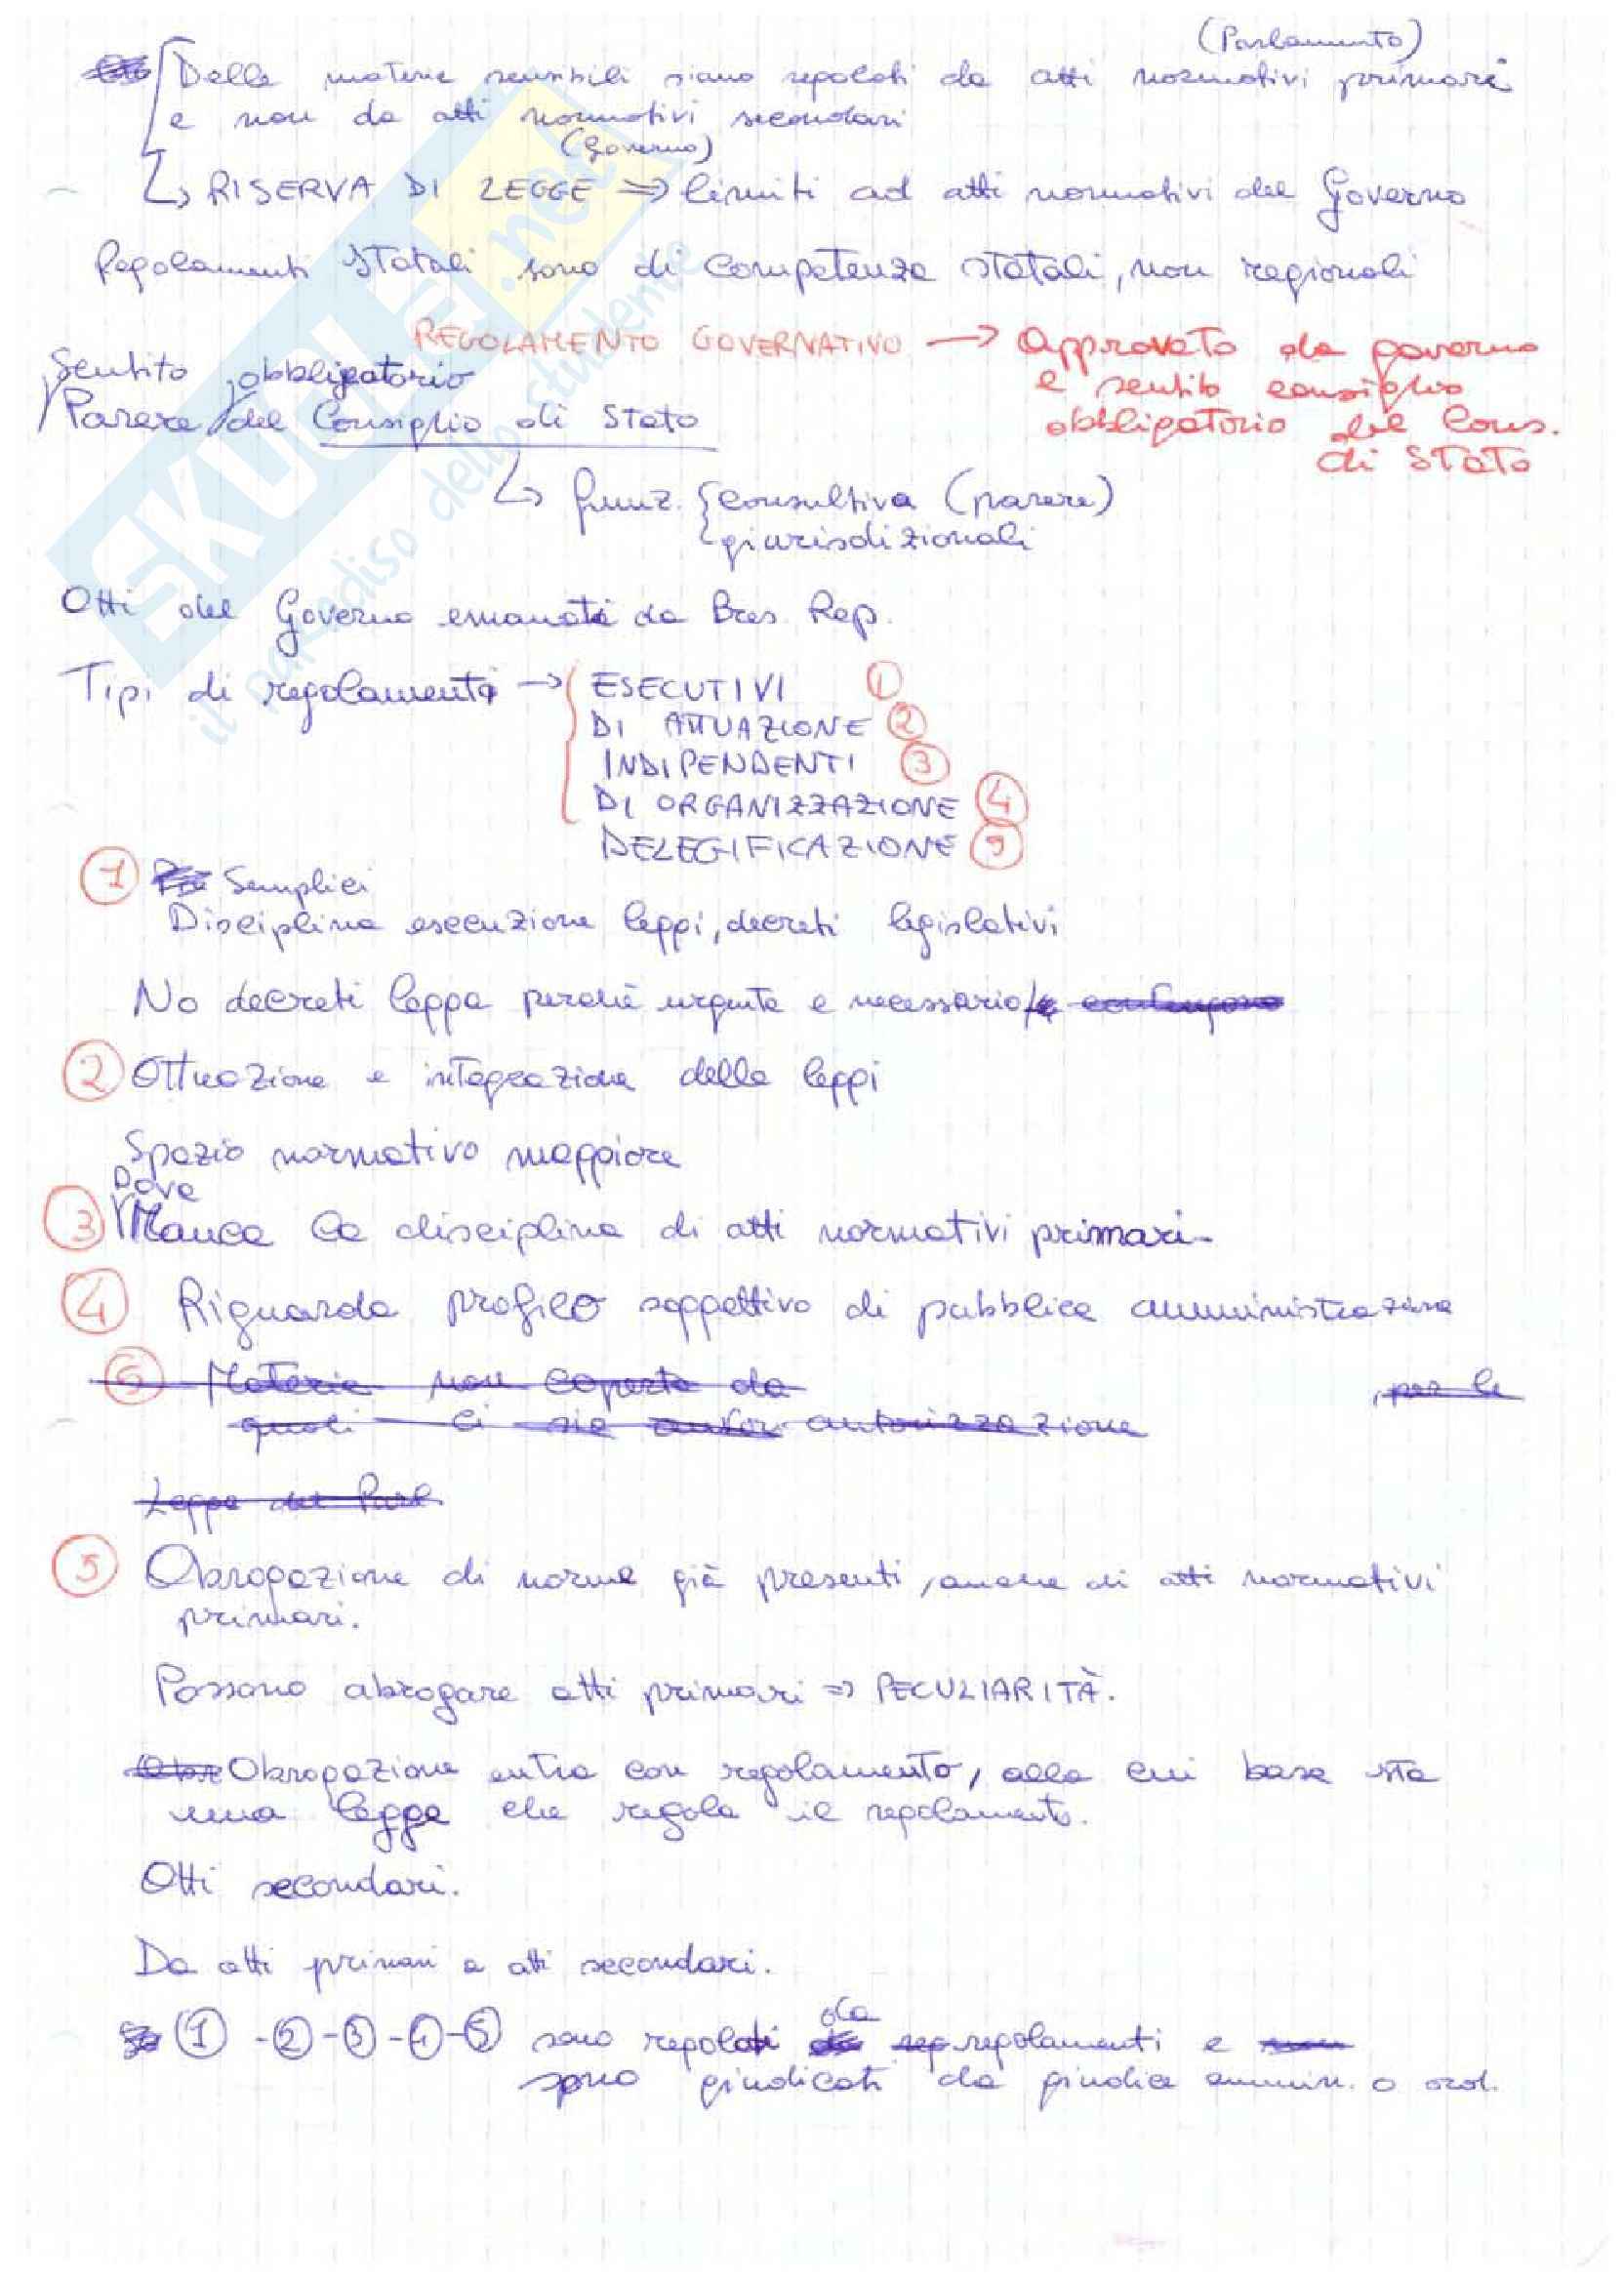 (Parlamento)
Delle materie sensibili siano regolati da atti normativi primari
e non da atti normativi secondari
(Governo)
↳ RISERVA DI LEGGE => limiti ad atti normativi del Governo
Regolamenti statali sono di competenza statali, non regionali
REGOLAMENTO GOVERNATIVO → Approvato da governo
e sentito consiglio
obbligatorio del Cons.
di Stato
Sentito obbligatorio
Parere del Consiglio di Stato
↳ funz. { consultiva (parere)
giurisdizionali
Atti del Governo emanati da Pres. Rep.
Tipi di regolamenti → ESECUTIVI 1
DI ATTUAZIONE 2
INDIPENDENTI 3
DI ORGANIZZAZIONE 4
DELEGIFICAZIONE 5
1 Semplici
Disciplina esecuzione leggi, decreti legislativi
No decreti legge perchè urgente e necessario
2 Attuazione e integrazione delle leggi
Spazio normativo maggiore
Dove
3 Manca la disciplina di atti normativi primari-
4 Riguarda profilo soggettivo di pubblica amministrazione
6 Materia non coperta da , per le
quali ci sia autorizzazione
Legge del Parl.
5 Abrogazione di norme già presenti, anche di atti normativi
primari.
Possono abrogare atti primari => PECULIARITÀ.
Abrogazione entra con regolamento, alla cui base sta
una legge che regola il regolamento.
Atti secondari.
Da atti primari a atti secondari.
1 - 2 - 3 - 4 - 5 sono regolati da regolamenti e
sono giudicati da giudice ammin. o ord.
SKUOLA.net
il paradiso dello studente